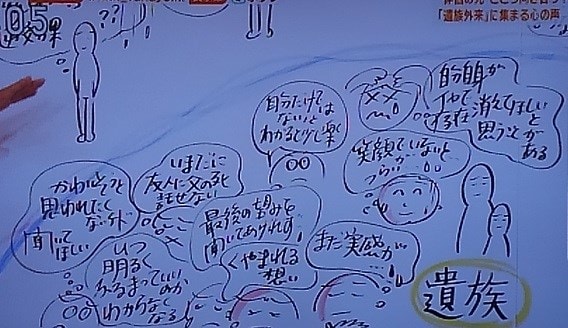 05
「遺族外来」に集まる心の声
??
自分だけでは
ないと
わかると少し楽
自分自身が
イヤで
消えてほしいと
思うことが
ある
笑顔でいないと
つらい
いまだに
友人に父の死
話せない
かわいそうと
思われたく
ないケド
聞いて
ほしい
最後の望みを
聞いてあげれず
くやまれる
想い
まだ実感が…
いつ
明るく
ふるまっていいのか
わからなく
なる
遺族